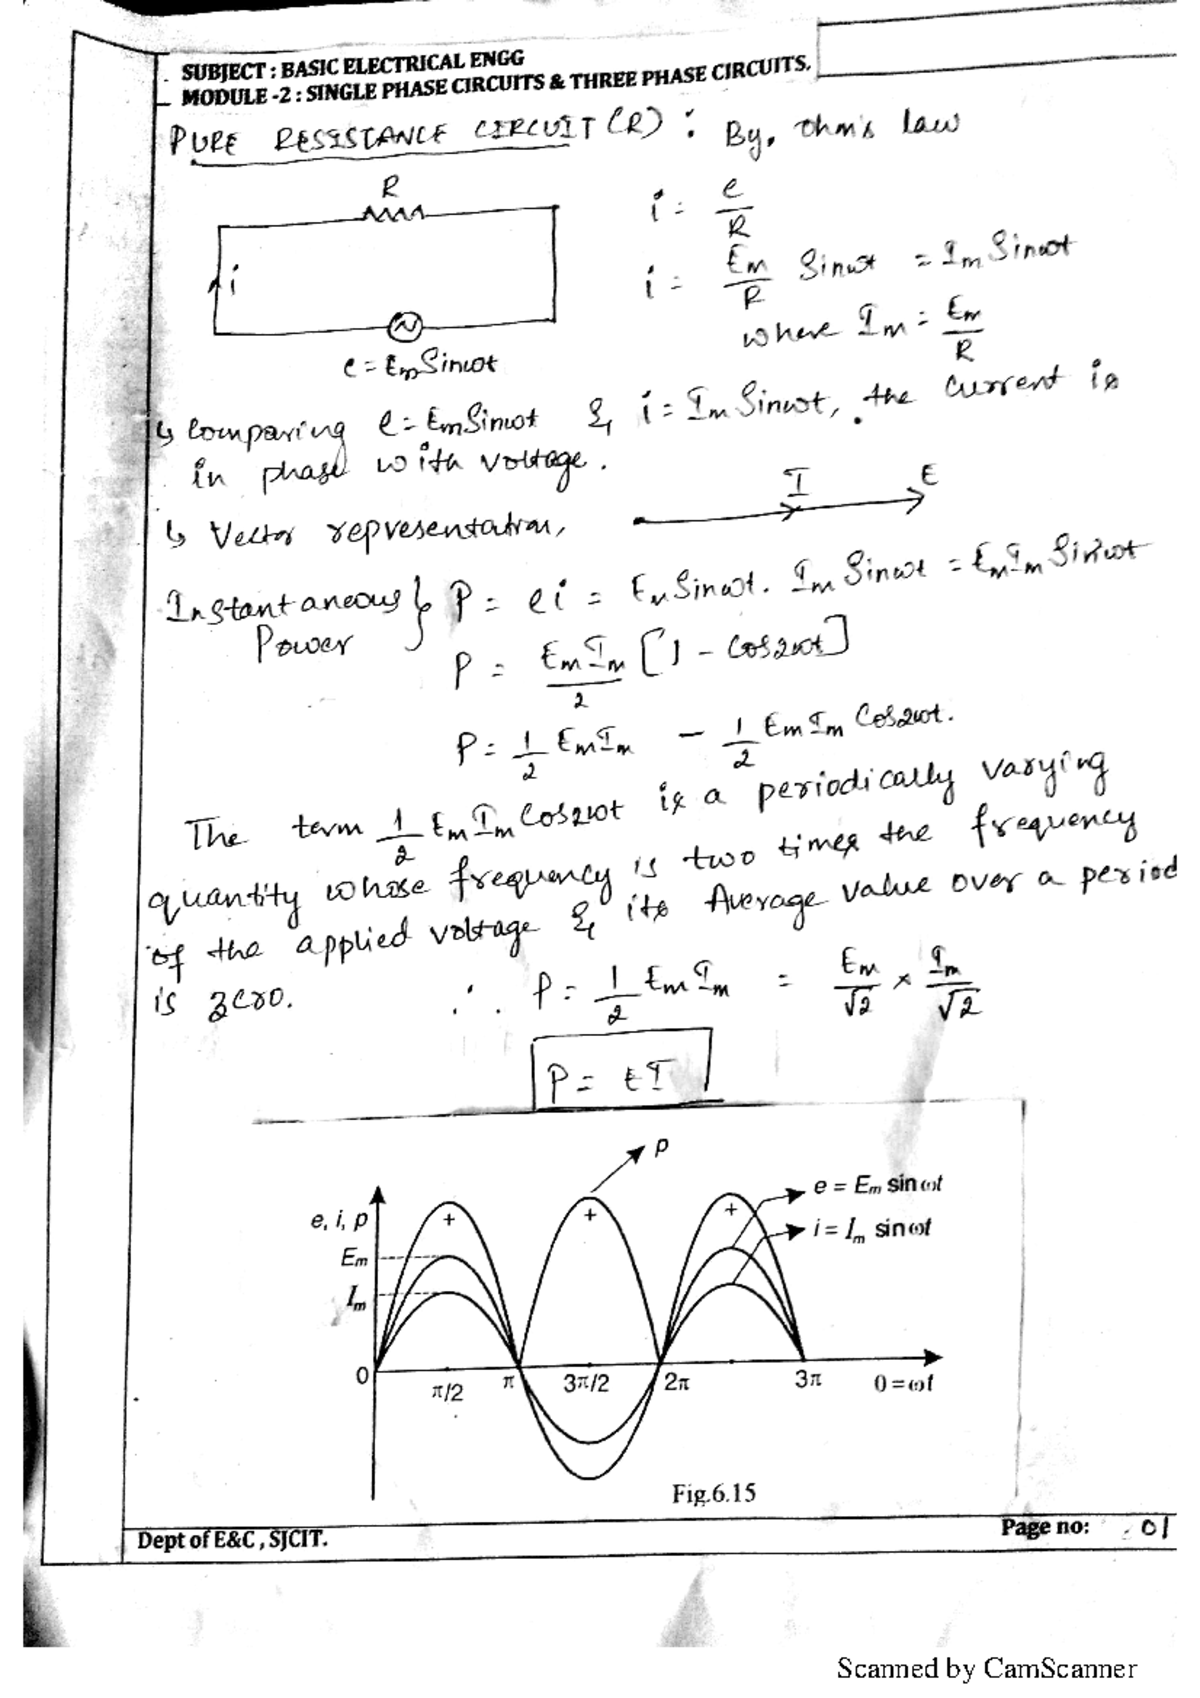 SUBJECT : BASIC ELECTRICAL ENGG
MODULE -2 : SINGLE PHASE CIRCUITS & THREE PHASE CIRCUITS.
PURE RESISTANCE CIRCUIT (R) : By, Ohm's law
R
i = e/R
i
i = Em/R Sinωt = Im Sinωt
where Im = Em/R
e = Em Sinωt
↳ Comparing e = Em Sinωt & i = Im Sinωt, the current is
in phase with voltage.
I E
↳ Vector representation,
Instantaneous } P = ei = Em Sinωt. Im Sinωt = Em Im Sin²ωt
Power
P = Em Im/2 [1 - Cos2ωt]
P = 1/2 Em Im - 1/2 Em Im Cos2ωt.
The term 1/2 Em Im Cos2ωt is a periodically varying
quantity whose frequency is two times the frequency
of the applied voltage & its Average value over a period
is zero. ∴ P = 1/2 Em Im = Em/√2 × Im/√2
P = EI
p
e, i, p
+ + +
e = Em sin ωt
i = Im sin ωt
Em
Im
0 π/2 π 3π/2 2π 3π 0 = ωt
Fig.6.15
Dept of E&C , SJCIT. Page no: 01
Scanned by CamScanner